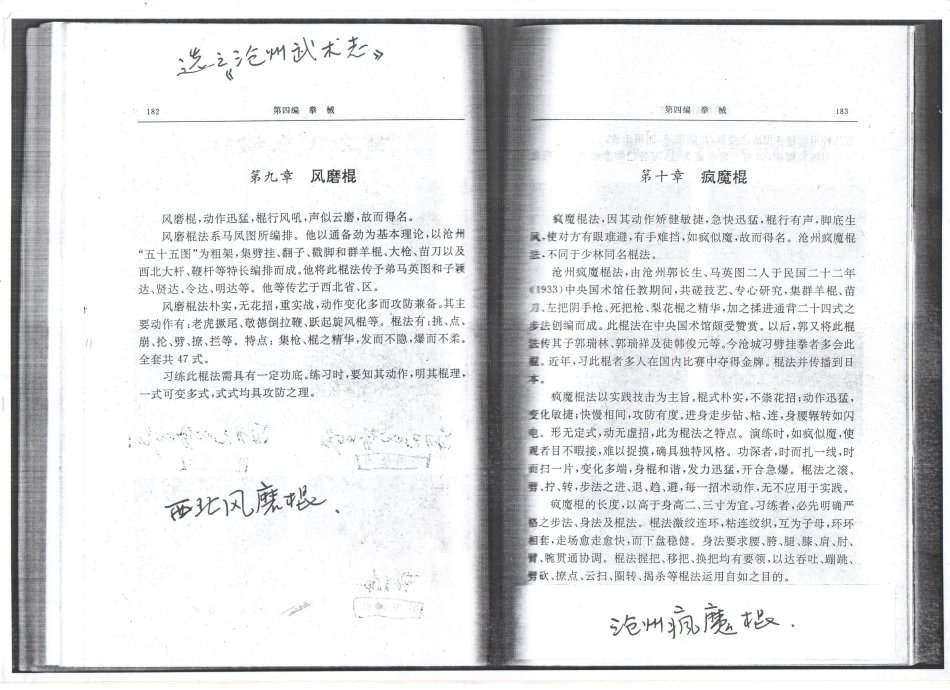 选之《沧州武术志》
182 第四编 拳 械
第九章 风磨棍
风磨棍,动作迅猛,棍行风吼,声似云磨,故而得名。
风磨棍法系马凤图所编排。他以通备劲为基本理论,以沧州
“五十五图”为粗架,集劈挂、翻子、戳脚和群羊棍、大枪、苗刀以及
西北大杆、鞭杆等特长编排而成。他将此棍法传于弟马英图和子颖
达、贤达、令达、明达等。他等传艺于西北省、区。
风磨棍法朴实,无花招,重实战,动作变化多而攻防兼备。其主
要动作有:老虎撅尾、敬德倒拉鞭、跃起旋风棍等。棍法有:挑、点、
崩、抡、劈、撩、拦等。特点:集枪、棍之精华,发而不隐,爆而不柔。
全套共47式。
习练此棍法需具有一定功底。练习时,要知其动作,明其棍理,
一式可变多式,式式均具攻防之理。
西北风磨棍.
第四编 拳 械 183
第十章 疯魔棍
疯魔棍法,因其动作矫健敏捷,急快迅猛,棍行有声,脚底生
风,使对方有眼难避,有手难挡,如疯似魔,故而得名。沧州疯魔棍
法,不同于少林同名棍法。
沧州疯魔棍法,由沧州郭长生、马英图二人于民国二十二年
(1933)中央国术馆任教期间,共磋技艺、专心研究,集群羊棍、苗
刀、左把阴手枪、死把枪、梨花棍之精华,加之揉进通背二十四式之
步法创编而成。此棍法在中央国术馆颇受赞赏。以后,郭又将此棍
法传其子郭瑞林、郭瑞祥及徒韩俊元等。今沧城习劈挂拳者多会此
棍。近年,习此棍者多人在国内比赛中夺得金牌。棍法并传播到日
本。
疯魔棍法以实践技击为主旨。棍式朴实,不崇花招;动作迅猛,
变化敏捷;快慢相间,攻防有度。进身走步钻、粘、连,身腰辗转如闪
电。形无定式,动无虚招,此为棍法之特点。演练时,如疯似魔,使
观者目不暇接,难以捉摸,确具独特风格。功深者,时而扎一线,时
而扫一片,变化多端,身棍和谐,发力迅猛,开合急爆。棍法之滚、
劈、拧、转,步法之进、退、趋、避,每一招术动作,无不应用于实践。
疯魔棍的长度,以高于身高二、三寸为宜。习练者,必先明确严
格之步法、身法及棍法。棍法激绞连环,粘连绞织,互为子母,环环
相套,走场愈走愈快,而下盘稳健。身法要求腰、胯、腿、膝、肩、肘、
臂、腕贯通协调。棍法握把、移把、换把均有要领,以达吞吐、蹦跳、
劈砍、撩点、云扫、圈转、揭杀等棍法运用自如之目的。
沧州疯魔棍.